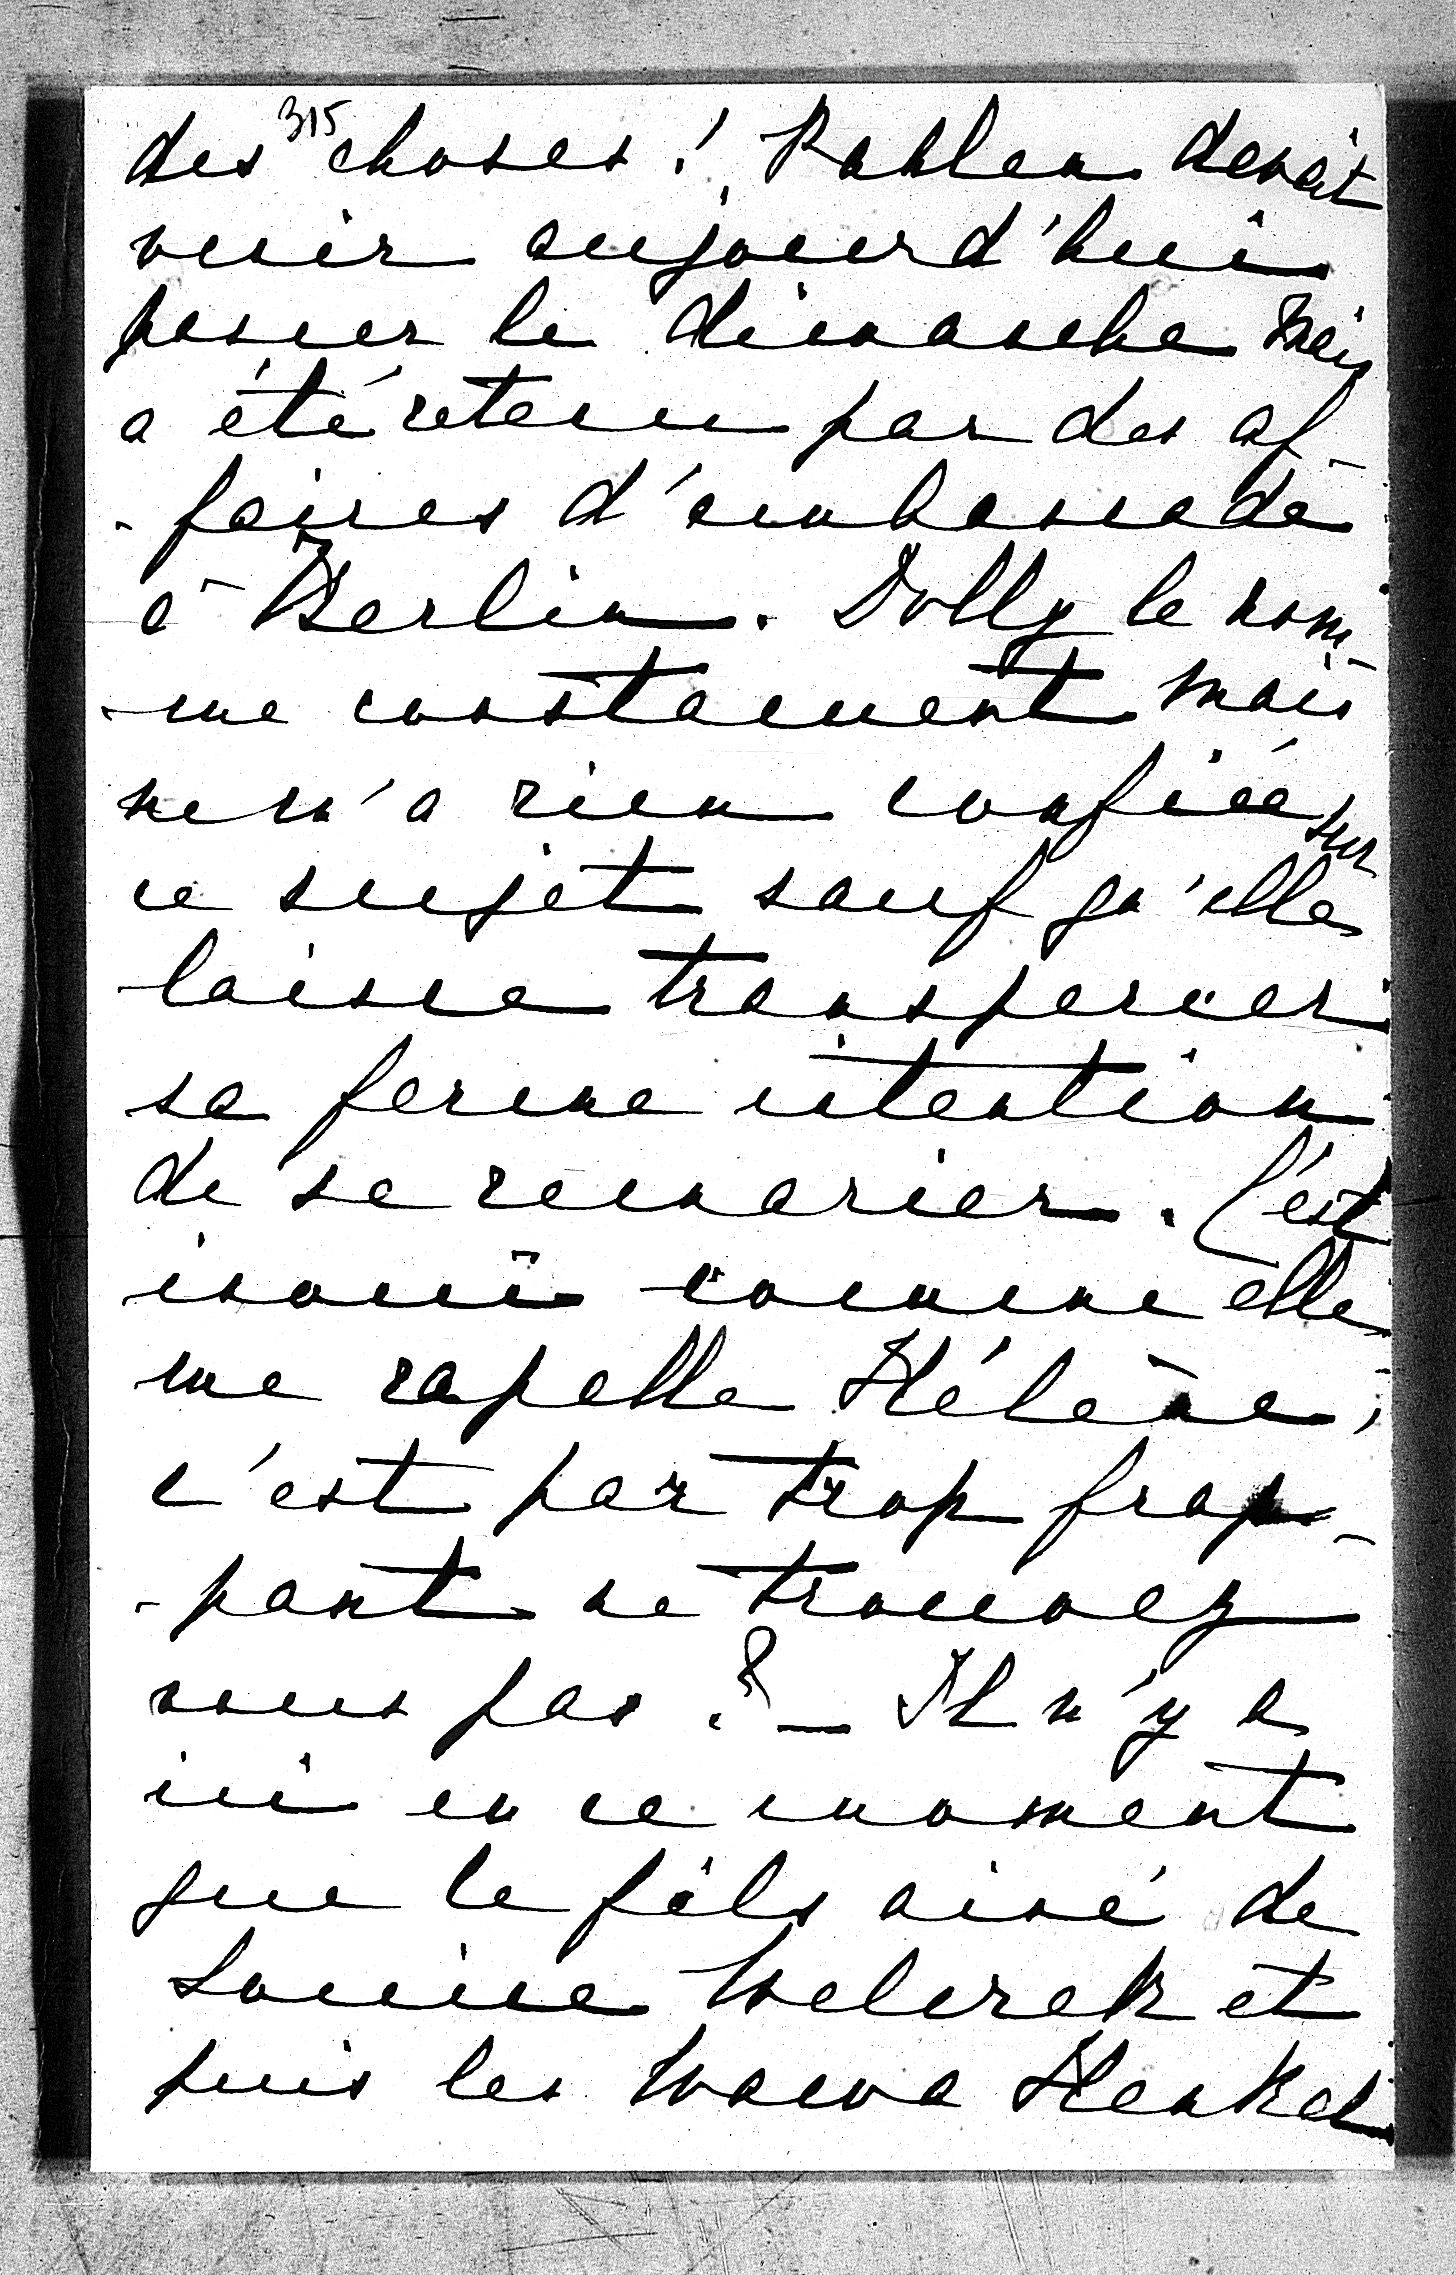 315
des choses! Pahlen devait
venir aujourd'hui
passer le dimanche mais
a été retenu par des af-
-faires d'ambassade
à Berlin. Dolly le nom-
-me constament mais
ne m'a rien confiée sur
ce sujet sauf qu'elle
laisse transpercer
sa ferme intention
de se remarier. C'est
inouï comme elle
me rapelle Hélène,
c'est par trop frap-
-pant ne trouvez
vous pas? — Il n'y a
ici en ce moment
que le fils ainé de
Louise Welczek et
puis les Wawa Henkel